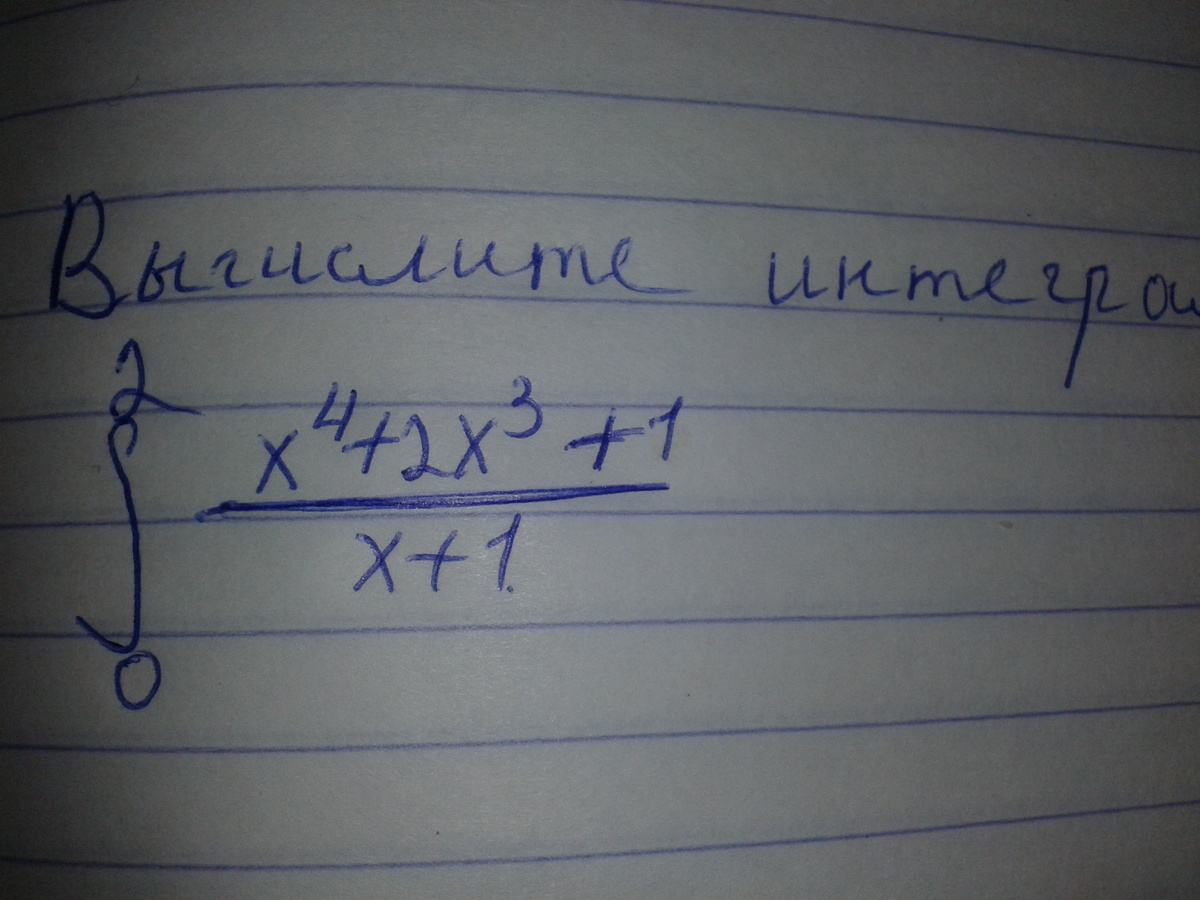 Вычислите интеграл
2
∫ x⁴+2x³+1 / x+1
0